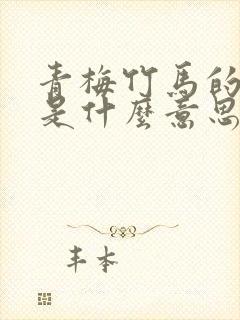 青梅竹馬的
是什麼意思
丰本